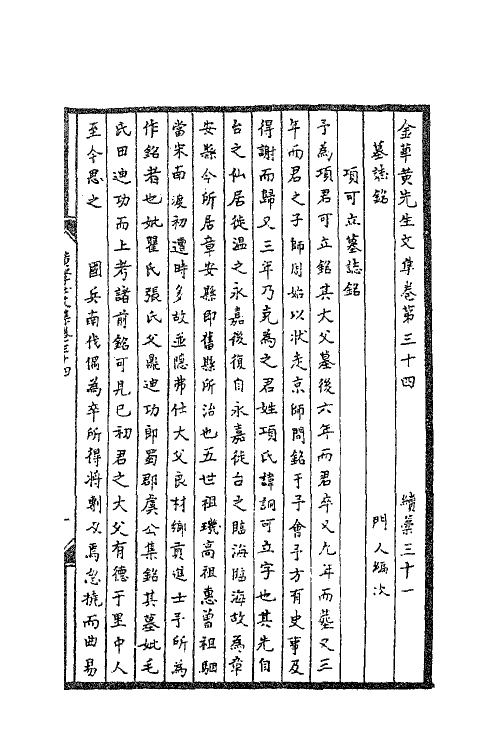 金華黃先生文集卷第三十四　續藁三十一
墓誌銘　門人編次
項可立墓誌銘
予為項君可立銘其大父墓後六年而君卒又九年而葬又三
年而君之子師周始以狀走京師問銘于予會予方有史事及
得謝而歸又三年乃克為之君姓項氏諱詗可立字也其先自
台之仙居徙溫之永嘉後復自永嘉徙台之臨海臨海故為章
安縣今所居章安縣即舊縣所治也五世祖璣高祖惠曾祖駰
當宋南渡初遭時多故並隱弗仕大父良材鄉貢進士予所為
作銘者也妣瞿氏張氏父鼎迪功郎蜀郡虞公集銘其墓妣毛
氏田迪功而上考諸前銘可見已初君之大父有德于里中人
至今思之　國兵南伐偶為卒所得將剚刃焉忽撓而曲易